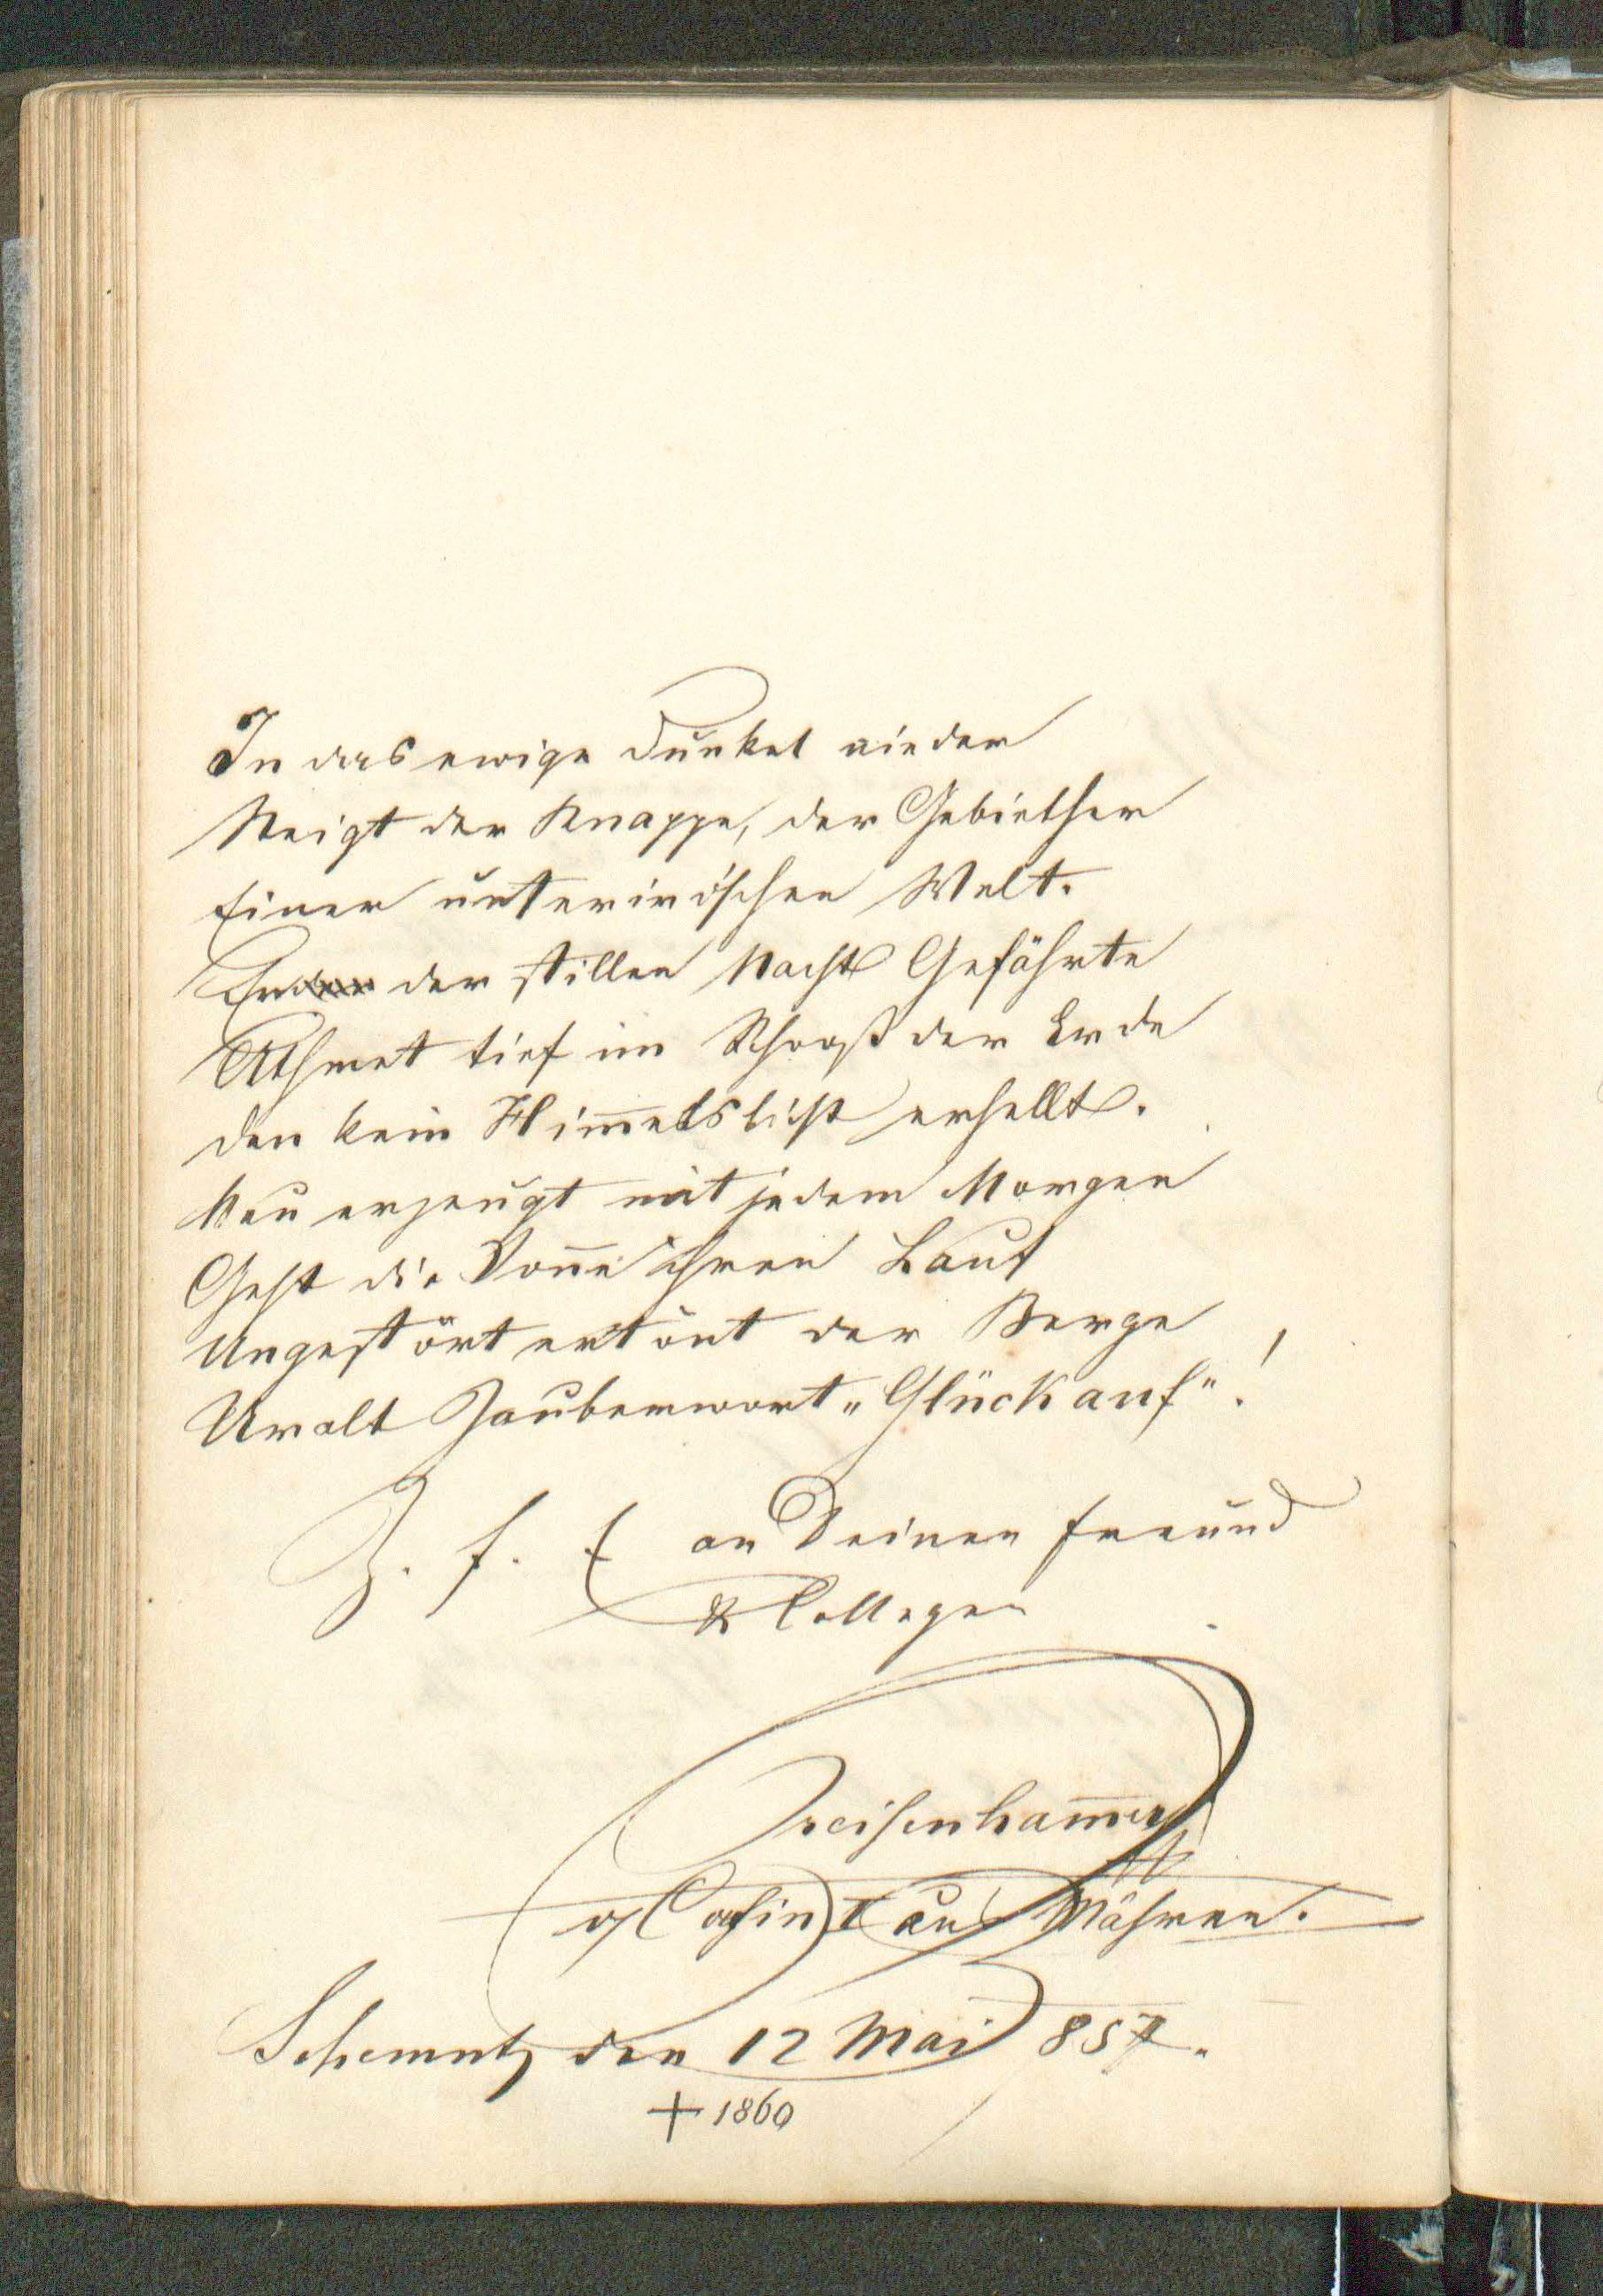 In das ewige Dunkel nieder
Steigt der Knappe, der Gebiether
Einer unterirdischen Welt.
Er der stillen Nacht Gefährte
Athmet tief im Schooß der Erde
den kein Him̅elslicht erhellt.
Neu erzeugt mit jedem Morgen
Geht die Son̅e ihren Lauf
Ungestört ertönt der Berge
Uralt Zauberwort „Glück auf“!
Z. f. E an Deinen Freund
& Collegen
aus Mähren.
Schemnitz den 12 Mai 857.
+ 1860